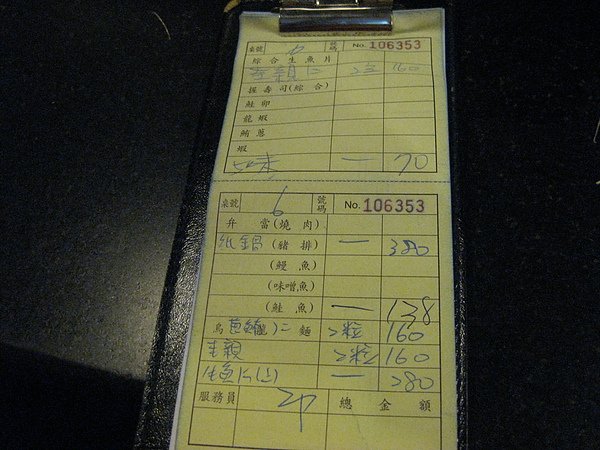 桌號 6 號碼 No. 106353
綜合生魚片
160
握壽司(綜合)
鮭卵
龍蝦
鮪蔥
蝦
一 70
桌號 6 號碼 No. 106353
弁當(燒肉)
紙鍋(豬排) 一 380
(鰻魚)
(味噌魚)
(鮭魚) 一 138
烏龍麵 2粒 160
2粒 160
一 280
服務員 總金額